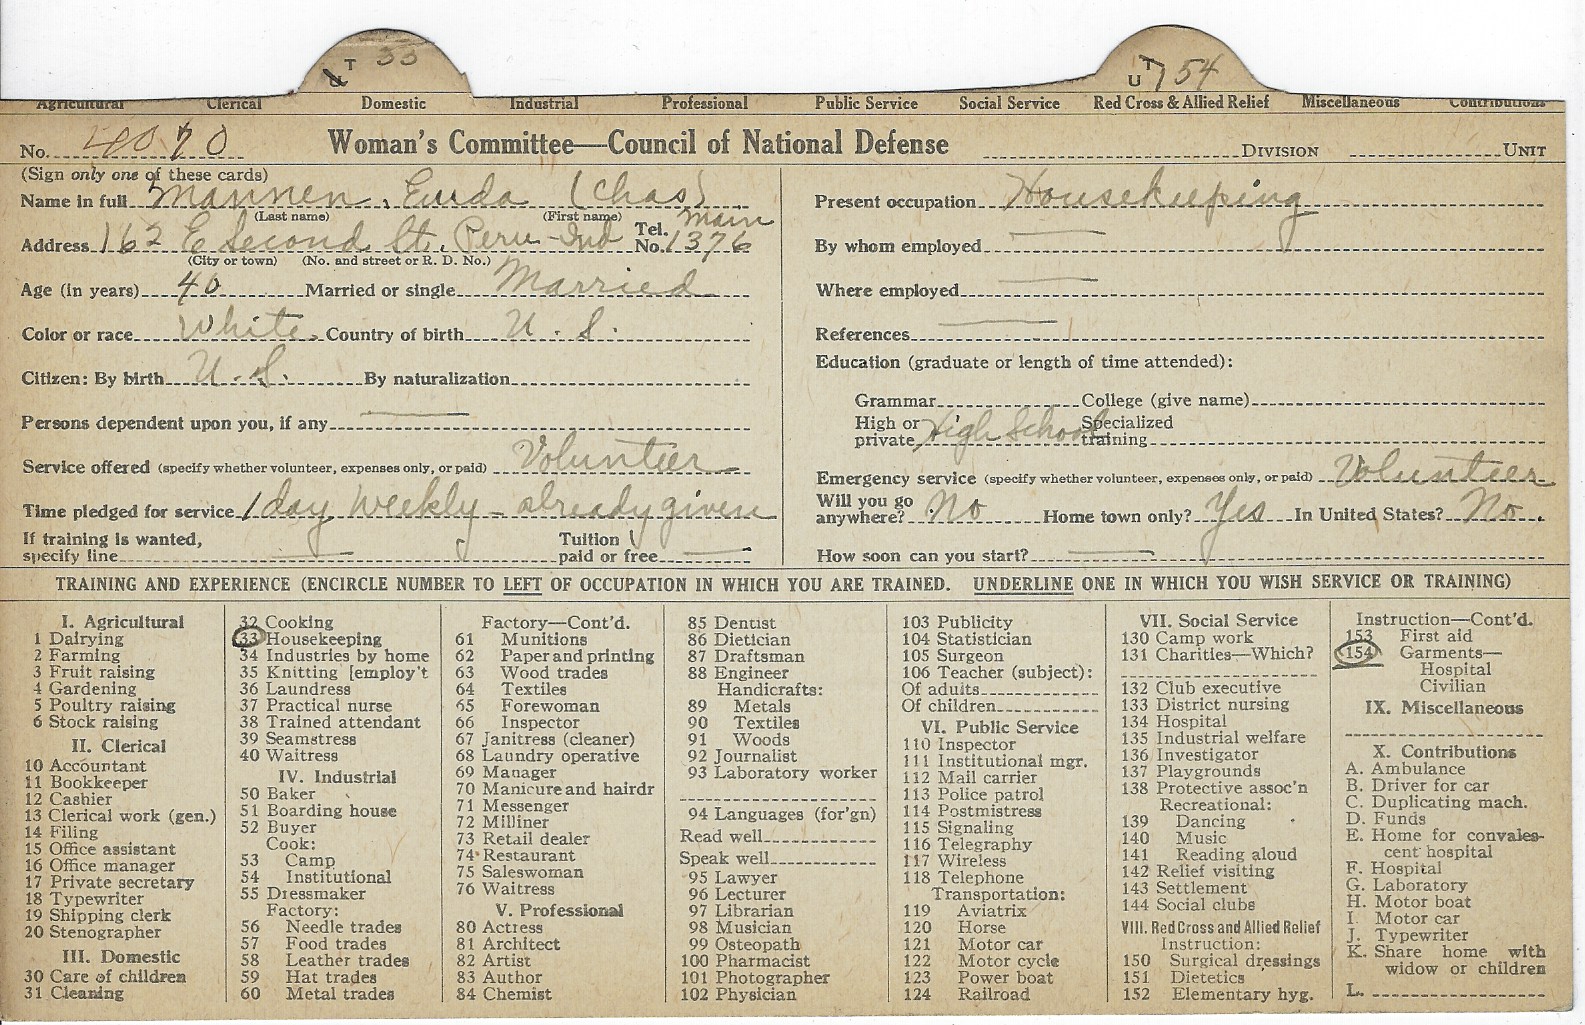 T 33
U T 154
Agricultural Clerical Domestic Industrial Professional Public Service Social Service Red Cross & Allied Relief Miscellaneous Contributions
No. 4070 Woman's Committee—Council of National Defense DIVISION UNIT
(Sign only one of these cards)
Name in full Mannen, Euda (Chas)
(Last name) (First name)
Address 162 E Second St. Peru - Ind Tel. No. Main 1376
(City or town) (No. and street or R. D. No.)
Age (in years) 40 Married or single Married
Color or race White Country of birth U. S.
Citizen: By birth U. S. By naturalization
Persons dependent upon you, if any
Service offered (specify whether volunteer, expenses only, or paid) Volunteer
Time pledged for service 1 day weekly - already given
If training is wanted,
specify line Tuition paid or free
Present occupation Housekeeping
By whom employed
Where employed
References
Education (graduate or length of time attended):
Grammar College (give name)
High or private High School Specialized training
Emergency service (specify whether volunteer, expenses only, or paid) Volunteer
Will you go anywhere? No Home town only? Yes In United States? No.
How soon can you start?
TRAINING AND EXPERIENCE (ENCIRCLE NUMBER TO LEFT OF OCCUPATION IN WHICH YOU ARE TRAINED. UNDERLINE ONE IN WHICH YOU WISH SERVICE OR TRAINING)
I. Agricultural
1 Dairying
2 Farming
3 Fruit raising
4 Gardening
5 Poultry raising
6 Stock raising
II. Clerical
10 Accountant
11 Bookkeeper
12 Cashier
13 Clerical work (gen.)
14 Filing
15 Office assistant
16 Office manager
17 Private secretary
18 Typewriter
19 Shipping clerk
20 Stenographer
III. Domestic
30 Care of children
31 Cleaning
32 Cooking
33 Housekeeping
34 Industries by home
35 Knitting [employ't
36 Laundress
37 Practical nurse
38 Trained attendant
39 Seamstress
40 Waitress
IV. Industrial
50 Baker
51 Boarding house
52 Buyer
Cook:
53 Camp
54 Institutional
55 Dressmaker
Factory:
56 Needle trades
57 Food trades
58 Leather trades
59 Hat trades
60 Metal trades
Factory—Cont'd.
61 Munitions
62 Paper and printing
63 Wood trades
64 Textiles
65 Forewoman
66 Inspector
67 Janitress (cleaner)
68 Laundry operative
69 Manager
70 Manicure and hairdr
71 Messenger
72 Milliner
73 Retail dealer
74 Restaurant
75 Saleswoman
76 Waitress
V. Professional
80 Actress
81 Architect
82 Artist
83 Author
84 Chemist
85 Dentist
86 Dietician
87 Draftsman
88 Engineer
Handicrafts:
89 Metals
90 Textiles
91 Woods
92 Journalist
93 Laboratory worker
94 Languages (for'gn)
Read well
Speak well
95 Lawyer
96 Lecturer
97 Librarian
98 Musician
99 Osteopath
100 Pharmacist
101 Photographer
102 Physician
103 Publicity
104 Statistician
105 Surgeon
106 Teacher (subject):
Of adults
Of children
VI. Public Service
110 Inspector
111 Institutional mgr.
112 Mail carrier
113 Police patrol
114 Postmistress
115 Signaling
116 Telegraphy
117 Wireless
118 Telephone
Transportation:
119 Aviatrix
120 Horse
121 Motor car
122 Motor cycle
123 Power boat
124 Railroad
VII. Social Service
130 Camp work
131 Charities—Which?
132 Club executive
133 District nursing
134 Hospital
135 Industrial welfare
136 Investigator
137 Playgrounds
138 Protective assoc'n
Recreational:
139 Dancing
140 Music
141 Reading aloud
142 Relief visiting
143 Settlement
144 Social clubs
VIII. Red Cross and Allied Relief
Instruction:
150 Surgical dressings
151 Dietetics
152 Elementary hyg.
Instruction—Cont'd.
153 First aid
154 Garments—
Hospital
Civilian
IX. Miscellaneous
X. Contributions
A. Ambulance
B. Driver for car
C. Duplicating mach.
D. Funds
E. Home for convales-
cent hospital
F. Hospital
G. Laboratory
H. Motor boat
I. Motor car
J. Typewriter
K. Share home with
widow or children
L.